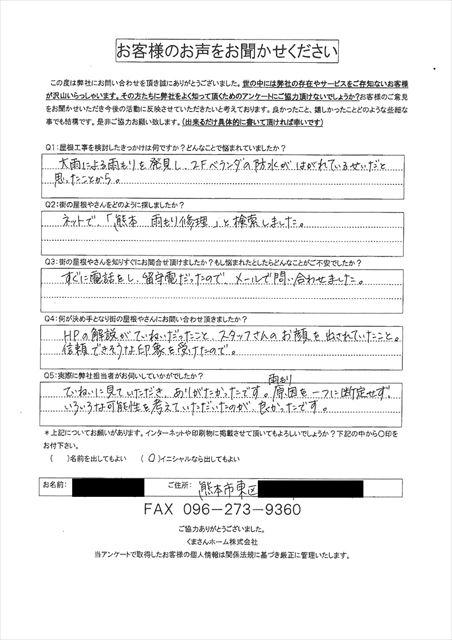 お客様のお声をお聞かせください
この度は弊社にお問い合わせを頂き誠にありがとうございました。世の中には弊社の存在やサービスをご存知ないお客様
が沢山いらっしゃいます。その方たちに弊社をよく知って頂くためのアンケートにご協力頂けないでしょうか?お客様のご意見
をお聞かせいただき今後の活動に反映させていただきたいと考えております。良かったこと、嬉しかったことどのような些細な
事でも結構です。是非ご協力お願い致します。(出来るだけ具体的に書いて頂ければ幸いです)
Q1:屋根工事を検討したきっかけは何ですか?どんなことで悩まれていましたか?
大雨による雨もりを発見し、2Fベランダの防水がはがれているせいだと
思ったことから。
Q2:街の屋根やさんをどのように探しましたか?
ネットで、「熊本 雨もり修理」と検索しました。
Q3:街の屋根やさんを知りすぐにお問合せ頂けましたか?もし悩まれたとしたらどんなことがご不安でしたか?
すぐに電話をし、留守電だったので、メールで問い合わせました。
Q4:何が決め手となり街の屋根やさんにお問い合わせ頂きましたか?
HPの解説がていねいだったこと、スタッフさんのお顔を出されていたこと。
信頼できそうな印象を受けたので。
Q5:実際に弊社担当者がお伺いしていかがでしたか?
ていねいに見ていただき、ありがたかったです。雨もり原因を一つに断定せず、
いろいろな可能性を考えていただいたのが、良かったです。
*上記についてお願いがあります。インターネットや印刷物に掲載させて頂いてもよろしいでしょうか?下記の中から〇印を
お付下さい。
( )名前を出してもよい (〇)イニシャルなら出してもよい
お名前: ご住所: 熊本市東区
FAX 096-273-9360
ご協力ありがとうございました。
くまさんホーム株式会社
当アンケートで取得したお客様の個人情報は関係法規に基づき厳正に管理いたします。